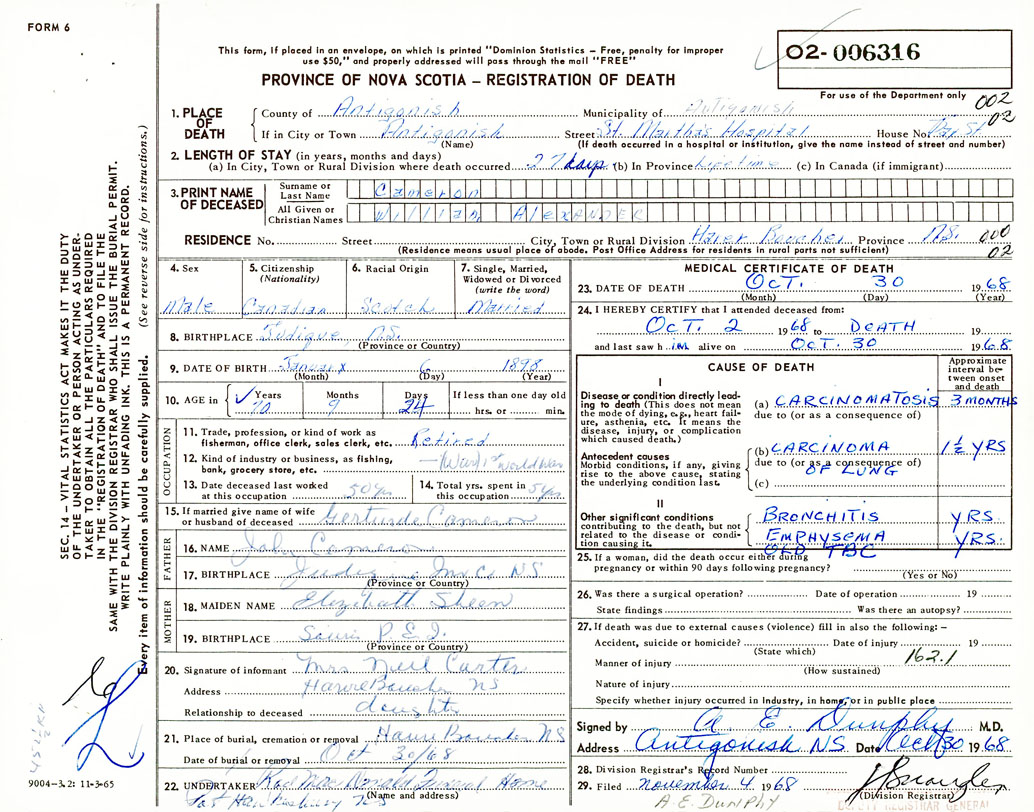 FORM 6
This form, if placed in an envelope, on which is printed "Dominion Statistics – Free, penalty for improper
use $50," and properly addressed will pass through the mail "FREE"
PROVINCE OF NOVA SCOTIA – REGISTRATION OF DEATH
O2-006316
For use of the Department only
002
02
1. PLACE OF DEATH
County of Antigonish Municipality of Antigonish
If in City or Town Antigonish Street St. Martha's Hospital House No. Bay St
(Name) (If death occurred in a hospital or institution, give the name instead of street and number)
2. LENGTH OF STAY (in years, months and days)
(a) In City, Town or Rural Division where death occurred 27 days (b) In Province Lifetime (c) In Canada (if immigrant)
3. PRINT NAME OF DECEASED
Surname or Last Name Cameron
All Given or Christian Names William Alexander
RESIDENCE No. Street City, Town or Rural Division Havre Boucher Province N.S. 000
(Residence means usual place of abode. Post Office Address for residents in rural parts not sufficient) 02
4. Sex Male
5. Citizenship (Nationality) Canadian
6. Racial Origin Scotch
7. Single, Married, Widowed or Divorced (write the word) Married
8. BIRTHPLACE Judique, N.S.
(Province or Country)
9. DATE OF BIRTH January 6 1898
(Month) (Day) (Year)
10. AGE in Years 70 Months 9 Days 24 If less than one day old
hrs. or min.
OCCUPATION
11. Trade, profession, or kind of work as
fisherman, office clerk, sales clerk, etc. Retired
12. Kind of industry or business, as fishing,
bank, grocery store, etc. (War) 1st World War
13. Date deceased last worked
at this occupation
14. Total yrs. spent in
this occupation
15. If married give name of wife
or husband of deceased Gertrude Cameron
FATHER
16. NAME John Cameron
17. BIRTHPLACE Judique Inv Co NS
(Province or Country)
MOTHER
18. MAIDEN NAME Elizabeth
19. BIRTHPLACE Souris P E I.
(Province or Country)
20. Signature of informant Mrs Neil Carter
Address Havre Boucher NS
Relationship to deceased daughter
21. Place of burial, cremation or removal Havre Boucher NS
Date of burial or removal Oct 30/68
22. UNDERTAKER MacDonald Funeral Home
(Name and address)
Port Hawkesbury NS
MEDICAL CERTIFICATE OF DEATH
23. DATE OF DEATH OCT. 30 1968
(Month) (Day) (Year)
24. I HEREBY CERTIFY that I attended deceased from:
OCT. 2 1968 to DEATH 19
and last saw h im alive on OCT. 30 1968
CAUSE OF DEATH
Approximate interval between onset and death
I
Disease or condition directly leading to death (This does not mean the mode of dying, e.g., heart failure, asthenia, etc. It means the disease, injury, or complication which caused death.)
(a) CARCINOMATOSIS 3 MONTHS
due to (or as a consequence of)
Antecedent causes
Morbid conditions, if any, giving rise to the above cause, stating the underlying condition last.
(b) CARCINOMA OF LUNG 1½ YRS
due to (or as a consequence of)
(c)
II
Other significant conditions
contributing to the death, but not related to the disease or condition causing it.
BRONCHITIS YRS.
EMPHYSEMA YRS.
OLD TBC
25. If a woman, did the death occur either during
pregnancy or within 90 days following pregnancy?
(Yes or No)
26. Was there a surgical operation? Date of operation 19
State findings Was there an autopsy?
27. If death was due to external causes (violence) fill in also the following: –
Accident, suicide or homicide? Date of injury 19
(State which)
162.1
Manner of injury
(How sustained)
Nature of injury
Specify whether injury occurred in Industry, in home, or in public place
Signed by A. E. Dunphy M.D.
Address Antigonish N.S. Date Oct 30 1968
28. Division Registrar's Record Number
29. Filed November 4 1968
(Division Registrar)
A.E. DUNPHY
DEPUTY REGISTRAR GENERAL
SEC. 14 – VITAL STATISTICS ACT MAKES IT THE DUTY
OF THE UNDERTAKER OR PERSON ACTING AS UNDER-
TAKER TO OBTAIN ALL THE PARTICULARS REQUIRED
IN THE "REGISTRATION OF DEATH" AND TO FILE THE
SAME WITH THE DIVISION REGISTRAR WHO SHALL ISSUE THE BURIAL PERMIT.
WRITE PLAINLY WITH UNFADING INK. THIS IS A PERMANENT RECORD.
Every item of information should be carefully supplied. (See reverse side for instructions.)
9004-3.2: 11-3-65